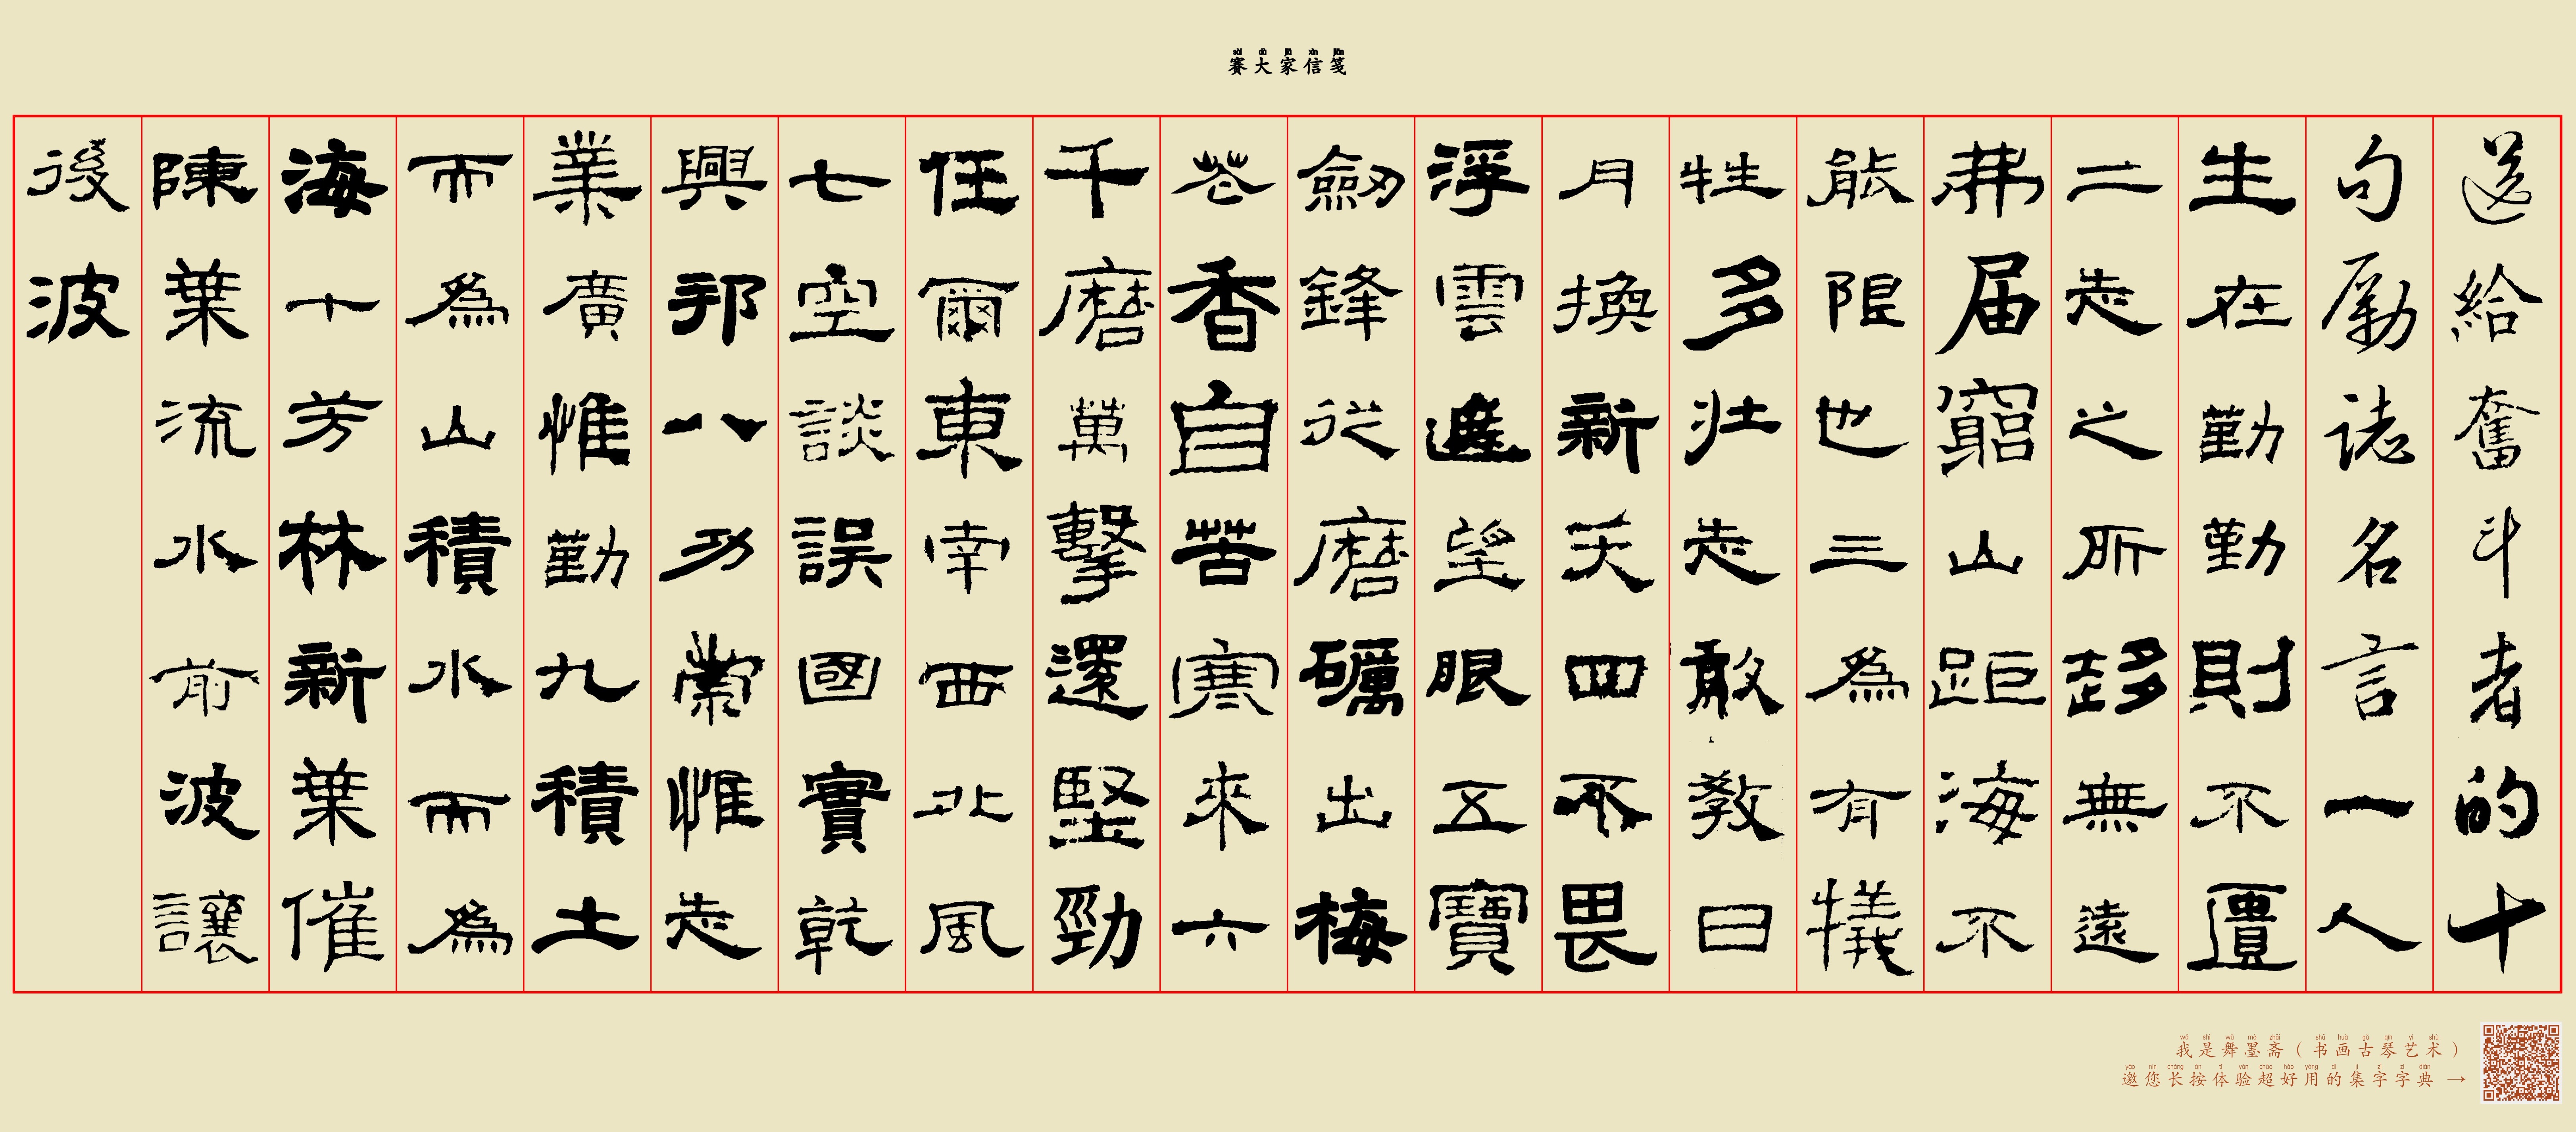 sài dà jiā xìn jiān
賽大家信箋
送給奮斗者的十
句勵誌名言一人
生在勤勤則不匱
二志之所趍無遠
弗届窮山距海不
能限也三為有犧
牲多壯志敢教日
月換新天四不畏
浮雲遮望眼五寶
劒鋒從磨礪出梅
花香自苦寒來六
千磨萬擊還堅勁
任爾東南西北風
七空談誤國實乾
興邦八功崇惟志
業廣惟勤九積土
而為山積水而為
海十芳林新葉催
陳葉流水前波讓
後波
wǒ shì wǔ mò zhāi shū huà gǔ qín yì shù
我是舞墨斋（书画古琴艺术）
yāo nín cháng àn tǐ yàn chāo hǎo yòng dí jí zì zì diǎn
邀您长按体验超好用的集字字典 →